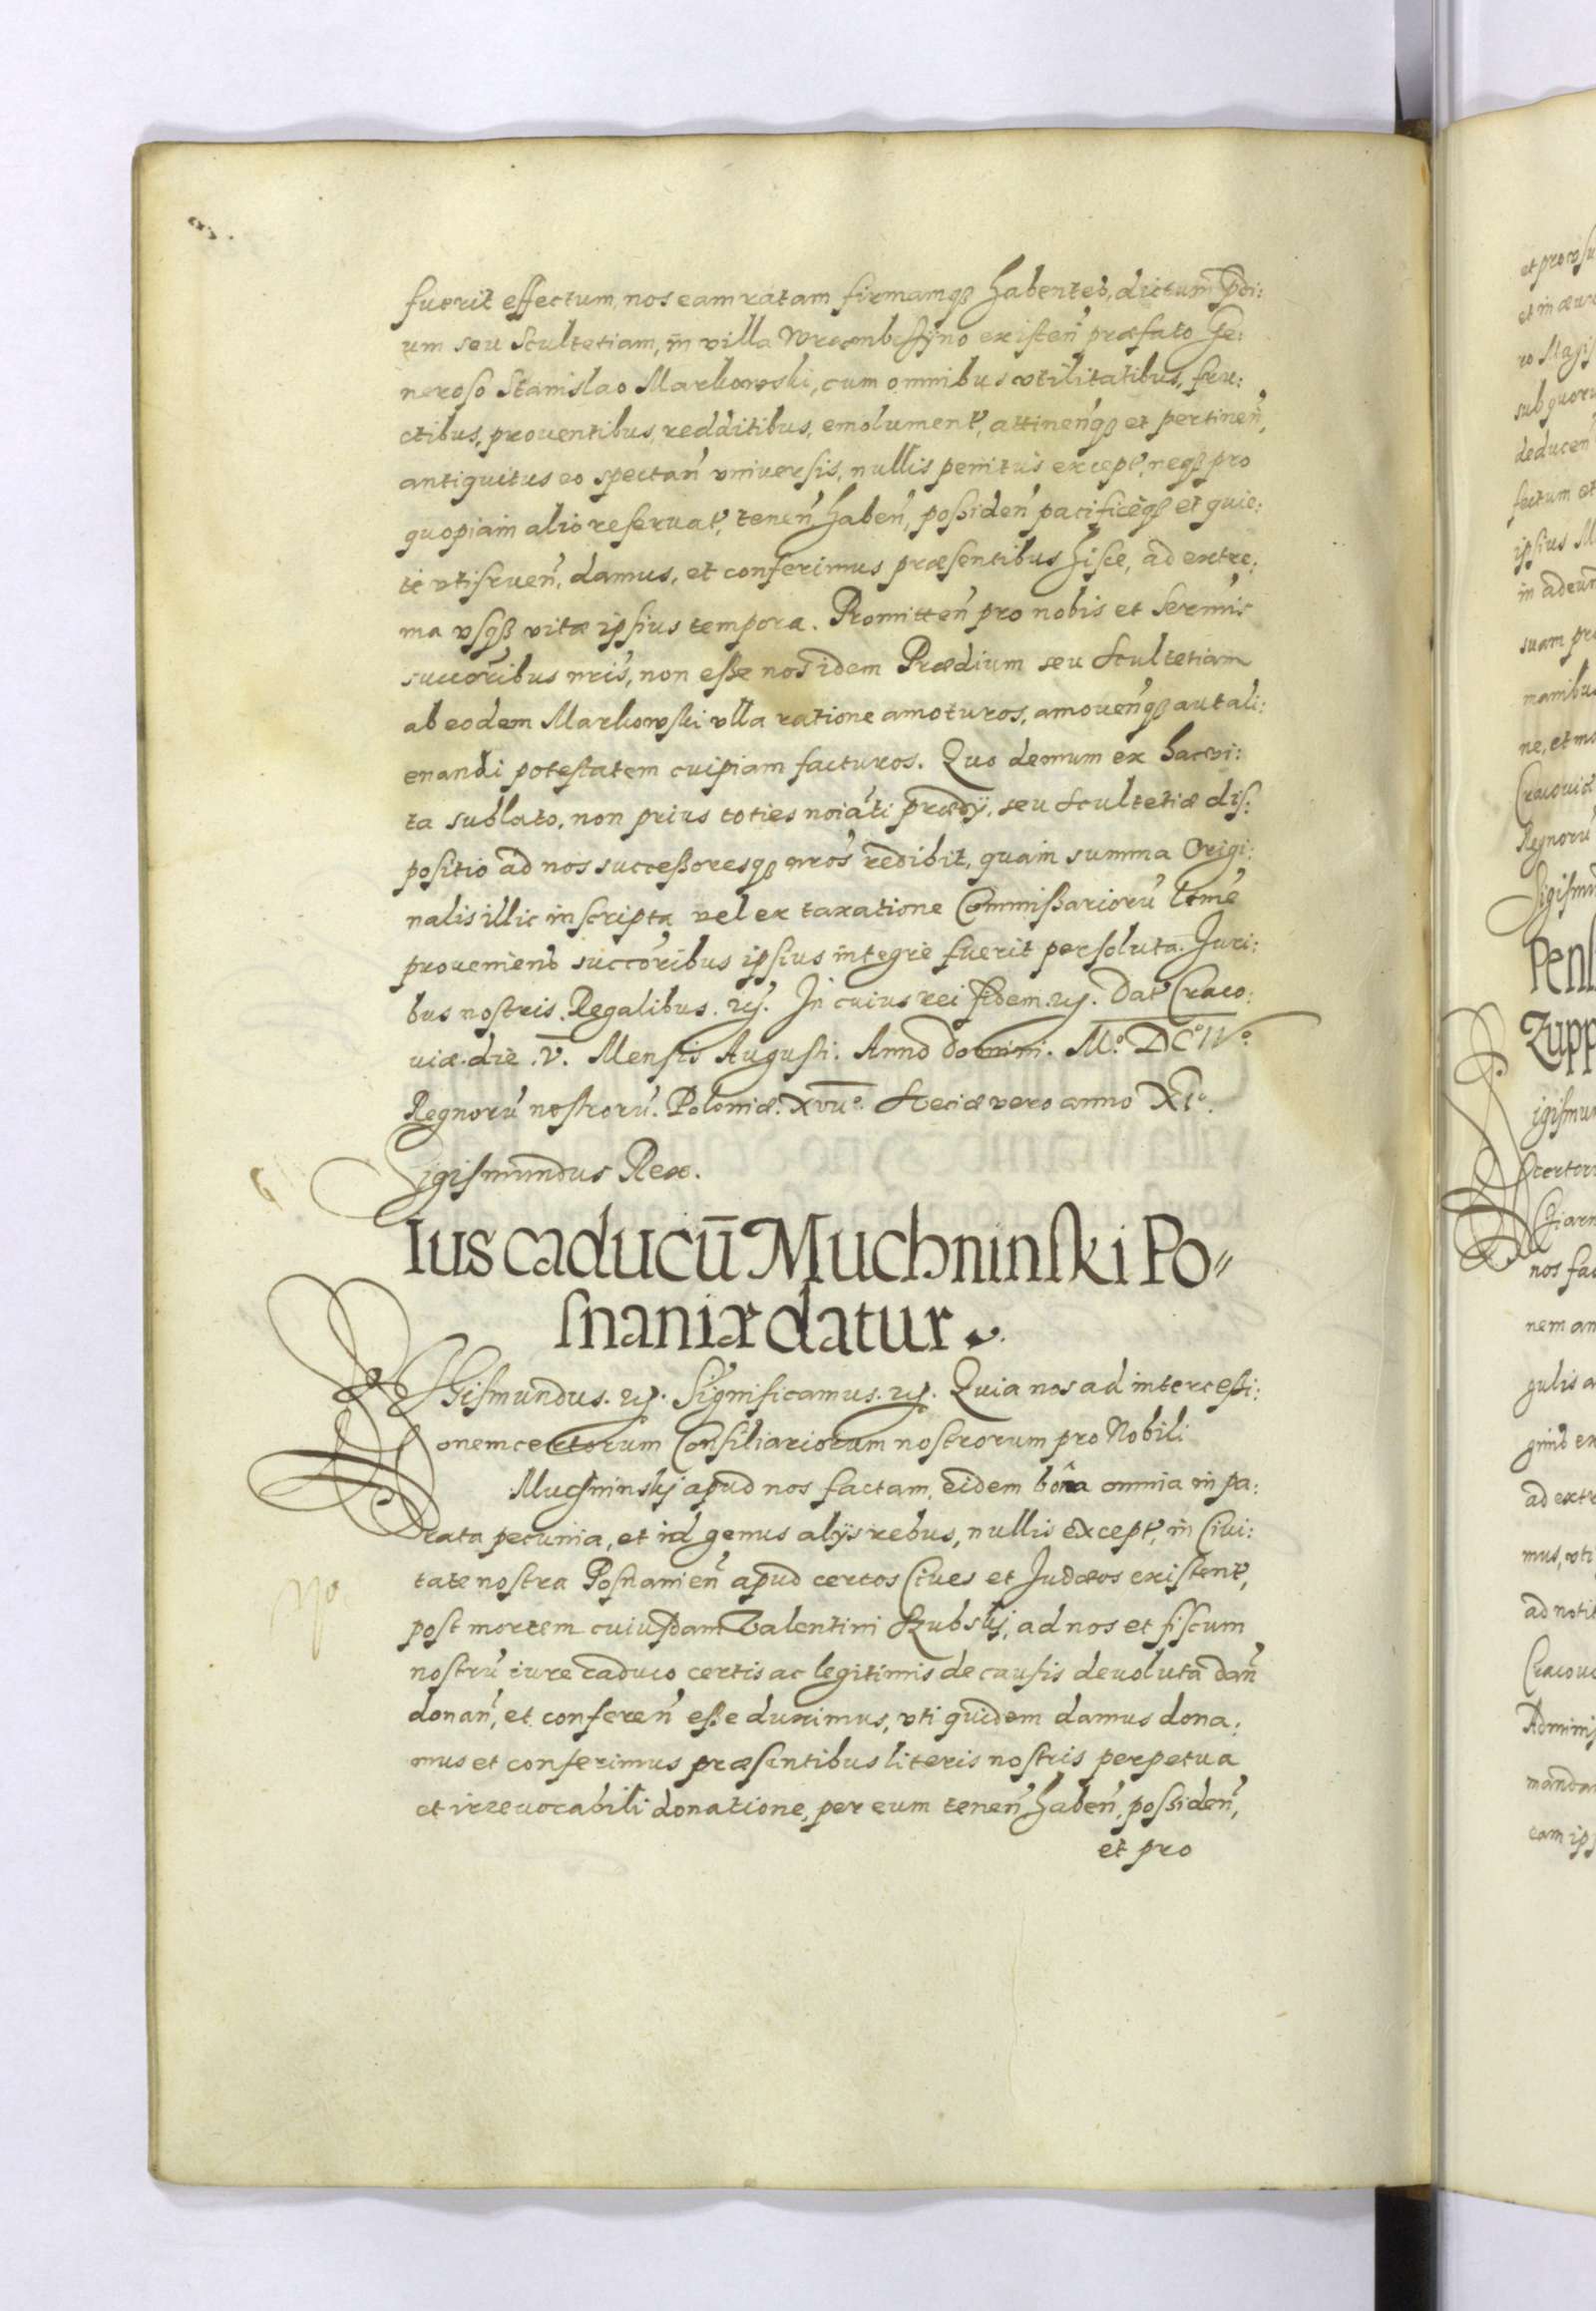 fuerit effectum, nos eam ratam firmamqȝ habentes, dictum Prdi:
um seu Scultetiam, in villa Wrambssyno existen̄ præfato Ge:
neroso Stanislao Markowski, cum omnibus vtilitatibus, fru:
ctibus, prouentibus, redditibus, emolument', attinen̄qȝ et pertinen̄,
antiquitus eo spectan̄ vniuersis, nullis penitus except', neqȝ pro
quopiam alio reseruat', tenen̄ haben̄, possiden̄ pacificèqȝ et quie:
tè vtifruen̄, damus, et conferimus præsentibus hisce, ad extre:
ma vsqȝ vitæ ipsius tempora. Promitten̄ pro nobis et Serm̄is
succōribus nr̄is, non esse nos idem Prædium seu Scultetiam
ab eodem Markowski vlla ratione amoturos, amouen̄qȝ aut ali:
enandi potestatem cuipiam facturos. Quo demum ex hac vi:
ta sublato, non prius toties noiāti prædij, seu Scultetiæ dis:
positio ad nos successoresqȝ nr̄os redibit, quam summa Origi:
nalis illic inscripta vel ex taxatione Commissariorū ltīmè
proueniens succōribus ipsius integrè fuerit persoluta. Juri:
bus nostris Regalibus. etc. In cuius rei fidem. etc. Dat' Craco:
uiæ. die .V. Mensis Augusti. Anno domini. M.º DCº IVº
Regnorū nostrorū. Poloniæ. XVIIº. Sueciæ vero anno XIº.
Sigismundus Rex.
Ius caducū Muchninski Po„
snaniæ datur.
SIGismundus. etc. Significamus. etc. Quia nos ad intercessi:
onem certorum Consiliariorum nostrorum pro Nobili
Muchninskj apud nos factam, eidem bōna omnia in pa:
rata pecunia, et id genus alijs rebus, nullis except', in Ciui:
tate nostra Posnanien̄ apud certos Ciues et Judæos existent',
post mortem cuiusdam Valentini Skubskj, ad nos et fiscum
nostrū iure caduco certis ac legitimis de causis deuoluta dan̄
donan̄, et conferen̄ esse duximus, vti quidem damus dona:
mus et conferimus præsentibus literis nostris perpetua
et irreuocabili donatione, per eum tenen̄ haben̄, possiden̄,
et pro